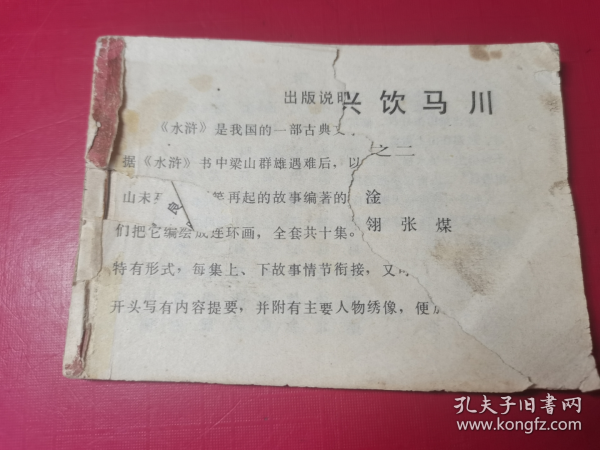 出版说明
兴饮马川
《水浒》是我国的一部古典
之二
据《水浒》书中梁山群雄遇难后，以
山未 再起的故事编著的
淦
良
翎 张 煤
们把它编绘成连环画，全套共十集。
特有形式，每集上、下故事情节衔接，又
开头写有内容提要，并附有主要人物绣像，便
孔夫子旧书网
www.kongfz.com